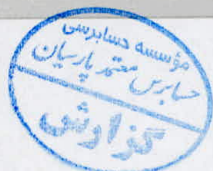 مؤسسه حسابرسی
حسابرس معتمد پارسیان
گزارش